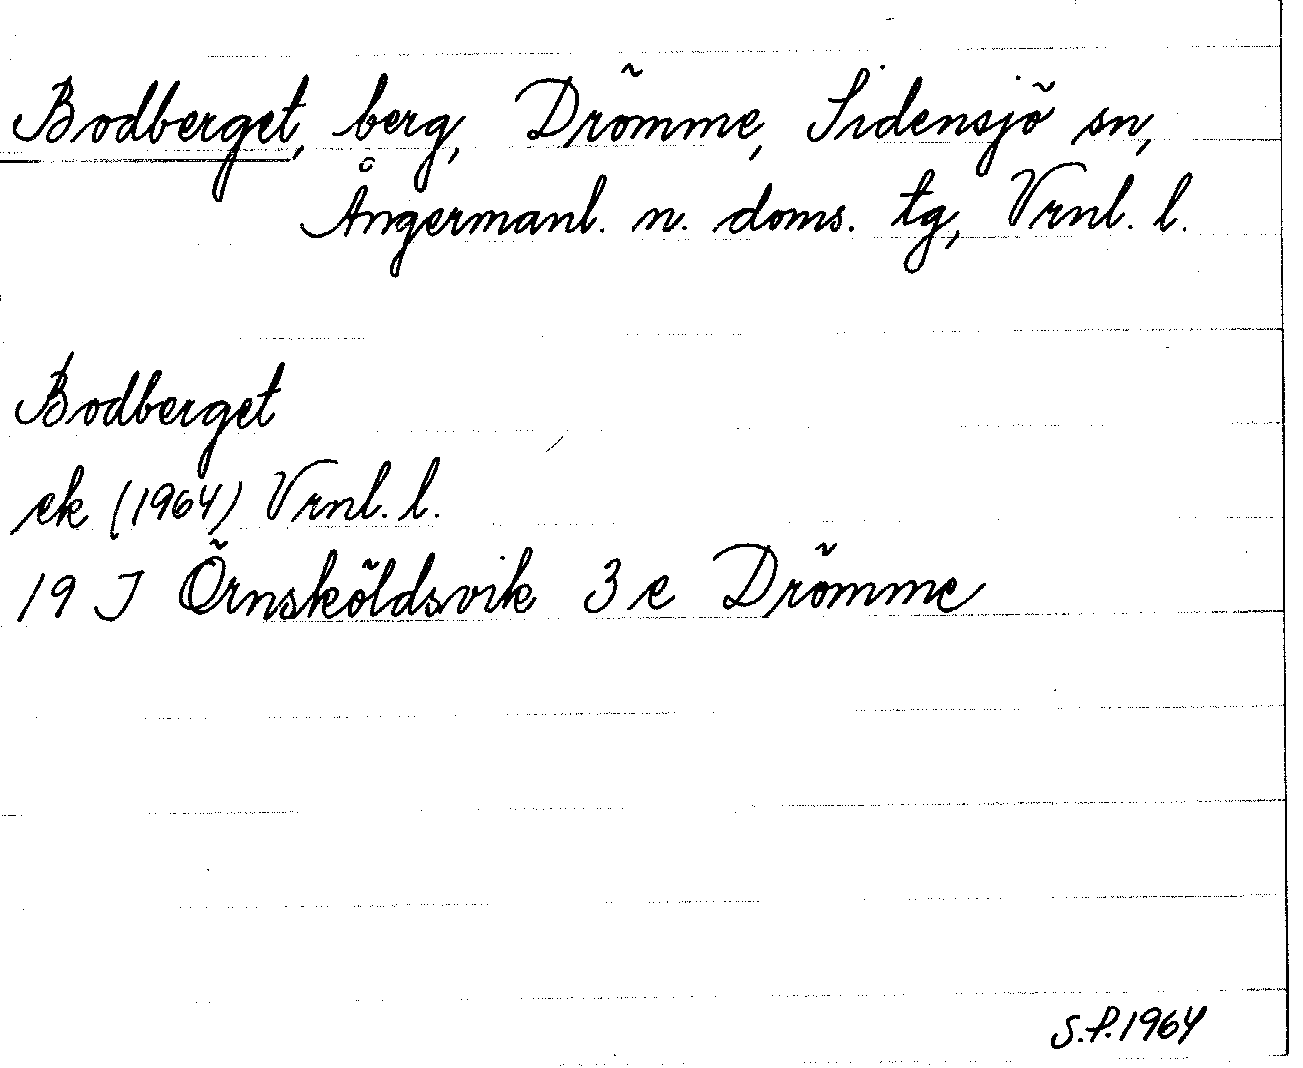 Bodberget, berg, Drömme, Sidensjö sn,
Ångermanl. n. doms. tg, Vrnl. l.
Bodberget
ek (1964) Vrnl. l.
19 J Örnsköldsvik 3 e Drömme
S.P. 1964